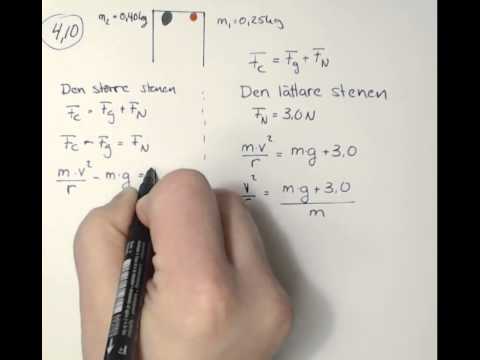 4,10
m₂ = 0,40kg
m₁ = 0,25kg
F_c = F_g + F_N
Den större stenen
F_c = F_g + F_N
F_c - F_g = F_N
m·v²/r - m·g =
Den lättare stenen
F_N = 3,0N
m·v²/r = m·g + 3,0
v²/r = (m·g + 3,0)/m